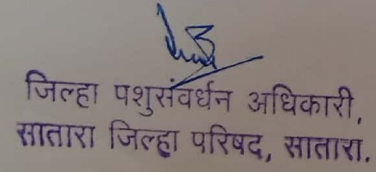 जिल्हा पशुसंवर्धन अधिकारी,
सातारा जिल्हा परिषद, सातारा.